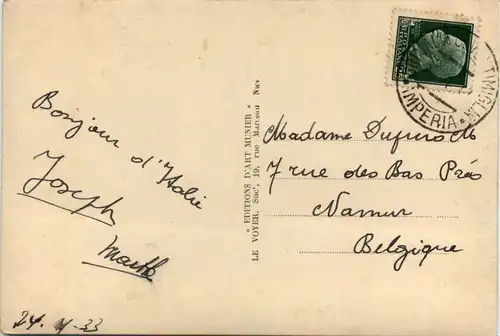 Bonjour d'Italie
Joseph
24. 33
« EDITIONS D'ART MUNIER »
LE VOYER, Suc', 19, rue Marceau Nice
IMPERIA
Madame
7 rue des Bas Prés
Namur
Belgique